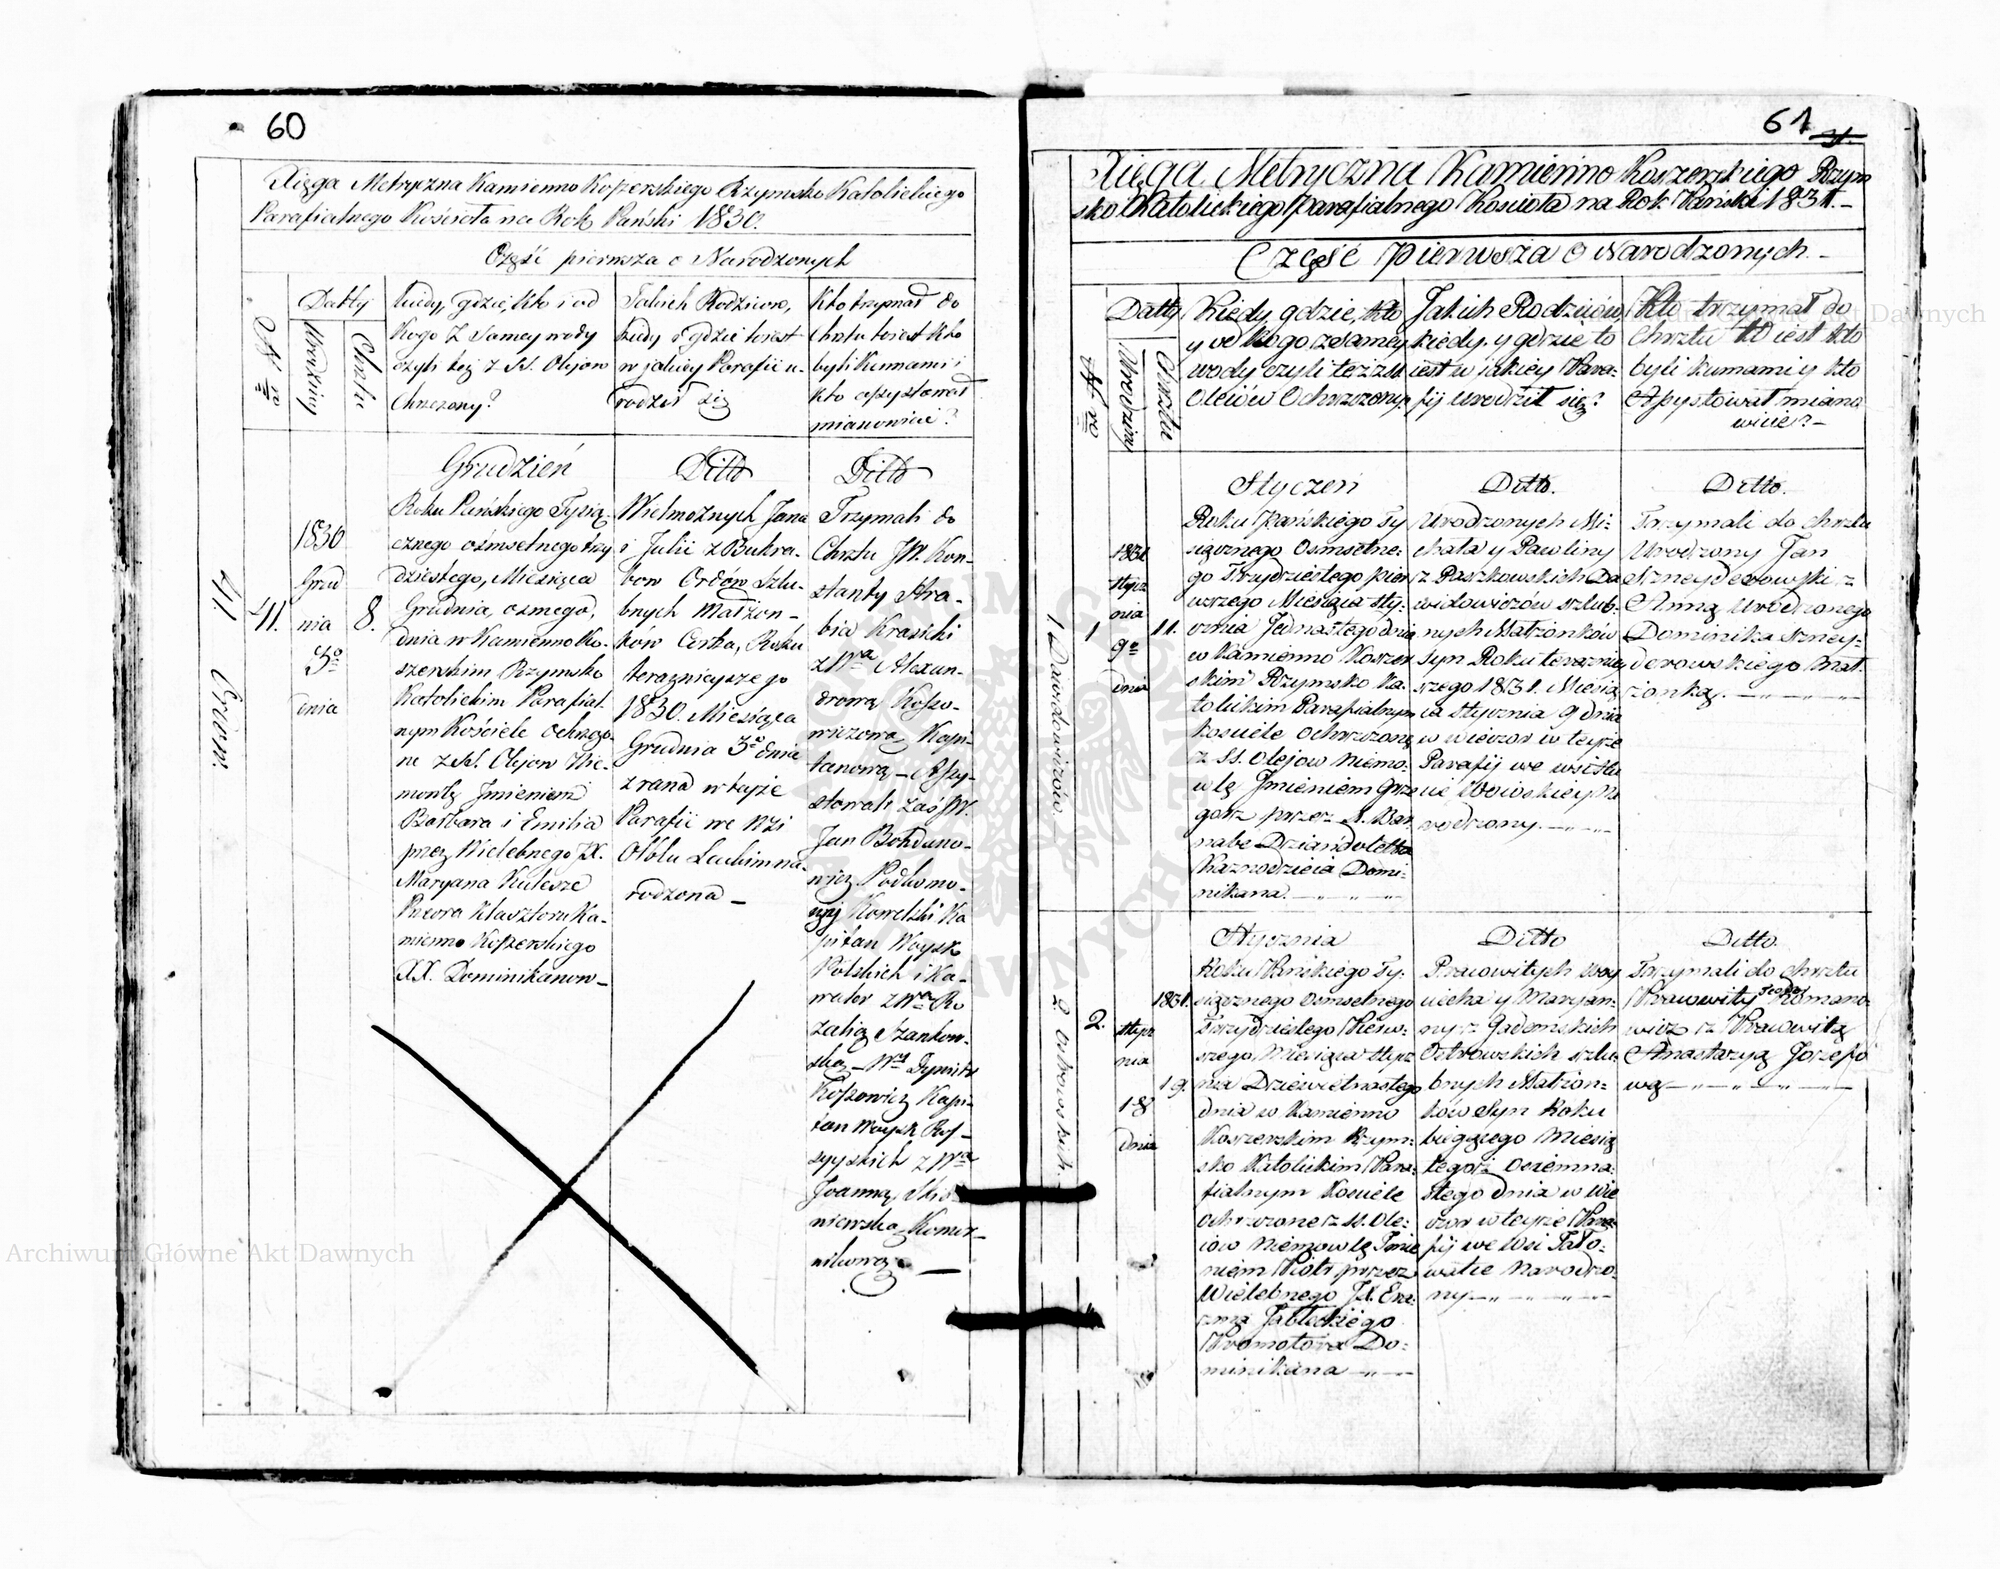 60
Xięga Metryczna Kamienno Koszerskiego Rzymsko Katolickiego
Parafialnego Kościoła na Rok Pański 1830.
Część pierwsza o Narodzonych
Nro
Datty
Urodziny
Chrztu
Kiedy, gdzie, kto i od
Kogo z samey wody
czyli też z SS. Olejow
Chrzczony?
Jakich Rodzicow,
kiedy i gdzie to iest
w jakiey Parafii u-
rodził się
Kto trzymał do
Chrztu to iest kto
byli Kumami i
kto assystował
mianowicie?
41. Ordow.
41.
1830
Grud
nia
3o
dnia
8.
Grudzień
Roku Pańskiego Tysią-
cznego ośmsetnego trzy
dziestego, Miesiąca
Grudnia, osmego,
dnia w Kamienno Ko-
szerskim Rzymsko
Katolickim Parafial-
nym Kościele Ochrzczo-
ne z SS. Olejow Nie-
mowlę Jmieniem
Barbara i Emilia
przez Wielebnego JX.
Maryana Kulesze
Przeora Klasztoru Ka-
mienno Koszerskiego
XX. Dominikanow_
Ditto
Wielmożnych Jana
i Julii z Bukra-
bow Ordów Szlu-
bnych Małżon-
kow Corka, Roku
teraznieyszego
1830. Miesiąca
Grudnia 3o dnia
z rana w tejże
Parafii we Wsi
Olblu Lackim na-
rodzona _
Ditto
Trzymali do
Chrztu JW. Kon-
stanty Hra-
bia Krasicki
z Wą Alexan-
drową Koszo-
wiczową Kapi-
tanową _ Assy-
stowali zaś JW.
Jan Bohdano-
wicz Podkomo-
rzy Kowelski Ka
pitan Woysk
Polskich i Ka-
waler z Wą Ro
zalią Szankow-
ską _ Wny Dymitr
Koszowicz Kapi-
tan Woysk Ros-
syyskich z Wą
Joanną
niewską Komor-
nikową _
61
31.
Xięga Metryczna Kamienno Koszerskiego Rzym
sko Katolickiego Parafialnego Kościoła na Rok Pański 1831. _
Część Pierwsza o Narodzonych. _
Nro
Datty
Urodziny
Chrztu
Kiedy gdzie, kto
y od kogo z samey
wody czyli też z SS.
Oleiów Ochrzczony,
Jakich Rodziców,
kiedy y gdzie to
iest w jakiey Para-
fij urodził się?
Kto trzymał do
Chrztu to iest kto
byli kumami y kto
Assystował miano
wicie? _
1 Dawidowiczów
1
1831
stycz
nia
9o
dnia
11.
Styczeń
Roku Pańskiego Ty
siącznego Osmsetne-
go Trzydziestego pier
wszego Miesiąca sty-
cznia Jednastego dnia
w Kamienno Koszer
skim Rzymsko Ka
tolickim Parafialnym
kosciele ochrzczone
z SS. Olejow Niemo-
wlę Jmieniem Grze
gorz przez X. Bar
nabe Dziandoletta
Kaznodzieia Domi-
nikana. _
Ditto.
Urodzonych Mi-
chała y Pawliny
z Paszkowskich Da
widowiczów szlub-
nych Małżonków
Syn Roku terazniey
szego 1831. Miesią
ca stycznia 9 dnia
w wieczor w teyże
Parafij we wsi Stu
cie Wowskiey Na
rodzony. _
Ditto.
Trzymali do chrztu
Urodzony Jan
Szneyderowski z
Anną Urodzonego
Dominika Szney-
derowskiego Mał-
żonką. _
2. Ostrowskich.
2.
1831.
stycz
nia
18
dnia
19.
Stycznia
Roku Pańskiego Ty-
siącznego Osmsetnego
Trzydziestego Pierw-
szego, Miesiąca stycz
nia Dziewietnastego
dnia w Kamienno
Koszerskim Rzym-
sko Katolickim Para-
fialnym Kosciele
Ochrzczone z SS. Ole-
iow Niemowlę Jmie
niem Piotr przez
Wielebnego JX. Era-
zma Jabłockiego
Promotora Do-
minikana _
Ditto
Pracowitych Woy
ciecha y Maryan-
ny z Gademskich
Ostrowskich szlu-
bnych Małżon-
ków Syn Roku
bieżącego Miesią
tegoż Osiemna-
stego dnia w Wie
czor w teyże Para-
fij we Wsi Toło-
watce Narodzo-
ny _
Ditto.
Trzymali do chrztu
Pracowity Romano-
wicz z Pracowitą
Anastazyą Jozefo
wą _
Archiwum Główne Akt Dawnych
Archiwum Główne Akt Dawnych